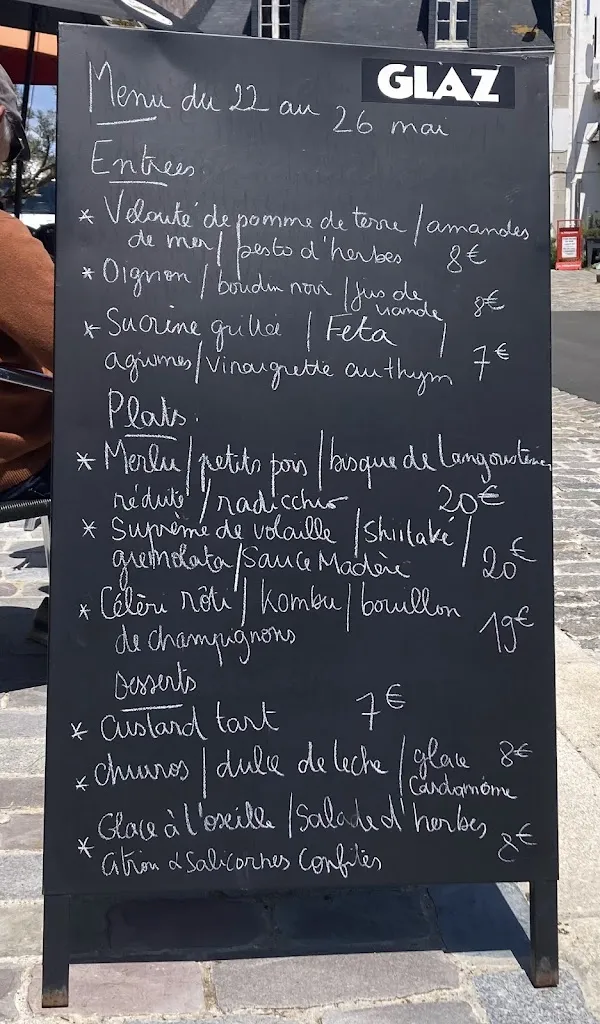 GLAZ
Menu du 22 au
26 mai
Entrées
* Velouté de pomme de terre / amandes
de mer / pesto d'herbes 8€
* Oignon / boudin noir / jus de
viande 8€
* Sucrine grillée / Feta /
agrumes / Vinaigrette au thym 7€
Plats.
* Merlu / petits pois / bisque de Langoustine
réduite / radicchio 20€
* Suprême de volaille / Shiitaké /
gremolata / Sauce Madère 20€
* Céleri rôti / Kombu / bouillon
de champignons 19€
Desserts
* Custard tart 7€
* churros / dulce de leche / glace 8€
Cardamome
Glace à l'oseille / Salade d'herbes
* Citron & Salicornes Confites 8€